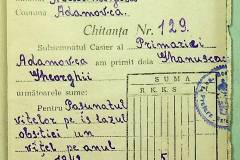 Adamovca.
Chitanța Nr. 129.
Subsemnatul Casier al Primariei
Adamovca am primit dela Ghanuscac
Gheorghii
următoarele sume:
SUMA
R. K. K. S
Pentru Pasunatul
vițelor pe islazul
obștiei un
vițel pe anul
1942
5